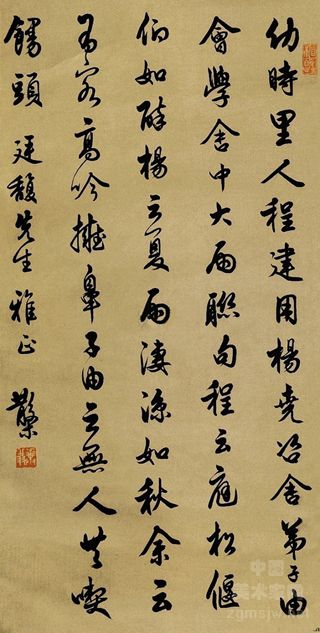 幼時里人程建用楊堯咨舍弟子由
會學舍中大雨聯句程云庭松偃
仰如醉楊云夏雨淒涼如秋余云
有客高吟擁鼻子由云無人共喫
饅頭 廷馥先生雅正
中国
美术家网